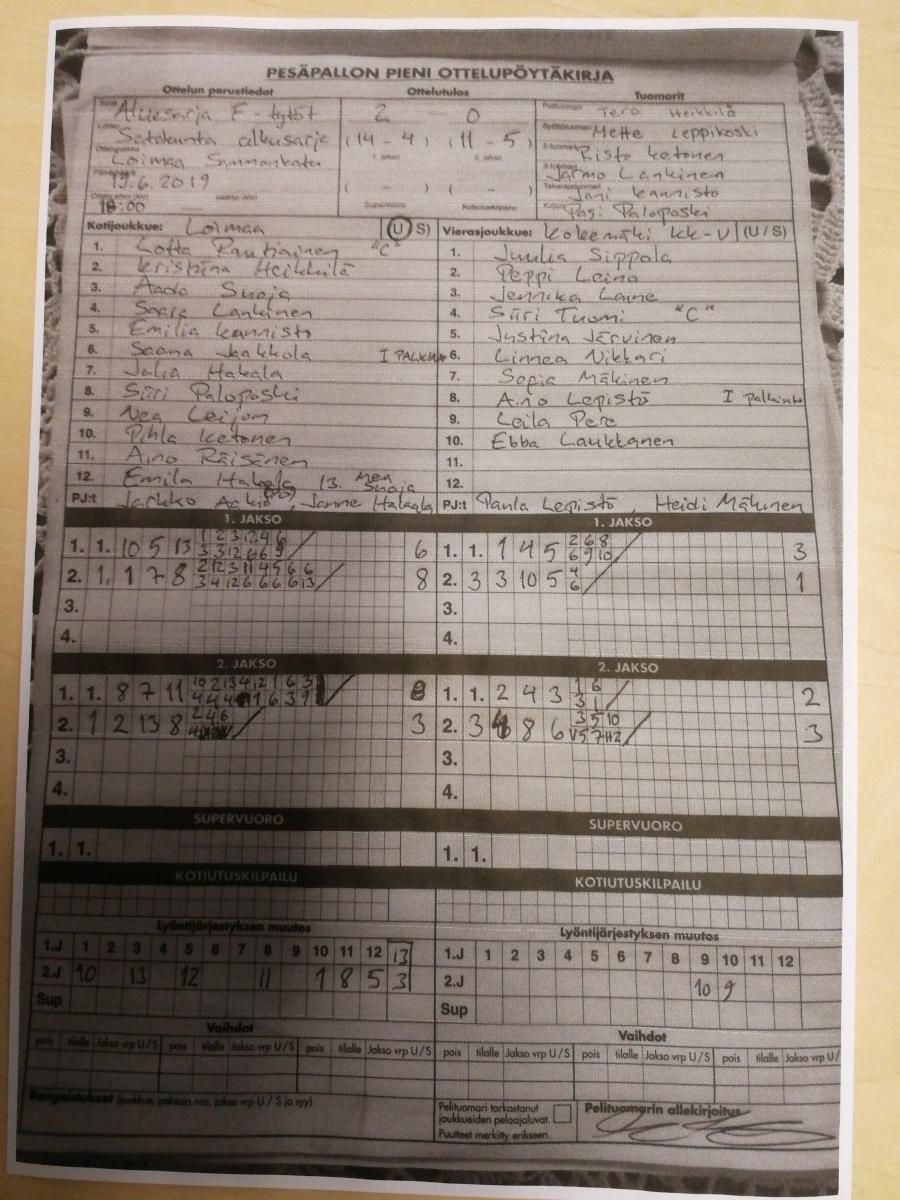 PESÄPALLON PIENI OTTELUPÖYTÄKIRJA
Ottelun perustiedot Ottelutulos Tuomarit
Aluesarja F-tytöt 2 0 Tero Heikkilä
Satakunta alkusarja (14 - 4) (11 - 5) Mette Leppikoski
Loimaa 1. jakso 2. jakso Risto Ketonen
19.6.2019 ( - ) ( - ) Jarmo Lankinen
18:00 Supervuoro Kotiutuskilpailu Jani Kannisto
Pasi Paloposki
Kotijoukkue: Loimaa (U S) Vierasjoukkue: Kokemäki KK-V (U / S)
1. Lotta Rautiainen "C" 1. Juulia Sippola
2. Kristiina Heikkilä 2. Peppi Leino
3. Aada Suoja 3. Jennika Laine
4. Saara Lankinen 4. Siiri Tuomi "C"
5. Emilia Kannisto 5. Justiina Järvinen
6. Saana Jaakkola I 6. Linnea Nikkari
7. Julia Hakala 7. Sofia Mäkinen
8. Siiri Paloposki 8. Aino Lepistö I palkinto
9. Nea Leijon 9. Leila Pere
10. Pihla Ketonen 10. Ebba Laukkanen
11. Aino Räisänen 11.
12. Emila Hakala 13. Nea Suoja 12.
PJ:t Jarkko , Janne Hakala PJ:t Paula Lepistö , Heidi Mäkinen
1. JAKSO 1. JAKSO
1. 1. 10 5 13 1 2 3 12 4 6 6 1. 1. 1 4 5 2 6 8 3
3 3 12 6 6 9 6 9 10
2. 1. 1 7 8 2 12 3 11 4 5 6 6 8 2. 3 3 10 5 4 1
3 4 12 6 6 6 6 13 6
3. 3.
4. 4.
2. JAKSO 2. JAKSO
1. 1. 8 7 11 10 2 13 4 12 1 6 3 8 1. 1. 2 4 3 1 6 2
4 4 4 1 6 3 9 3 1
2. 1 2 13 8 2 4 6 3 2. 3 4 8 6 3 5 10 3
V5 7 H2
3. 3.
4. 4.
SUPERVUORO SUPERVUORO
1. 1. 1. 1.
KOTIUTUSKILPAILU KOTIUTUSKILPAILU
Lyöntijärjestyksen muutos Lyöntijärjestyksen muutos
1.J 1 2 3 4 5 6 7 8 9 10 11 12 13 1.J 1 2 3 4 5 6 7 8 9 10 11 12
2.J 10 13 12 11 1 8 5 3 2.J 10 9
Sup Sup
Vaihdot Vaihdot
pois tilalle Jakso vrp U/S pois tilalle Jakso vrp U/S pois tilalle Jakso vrp U/S pois tilalle Jakso vrp U/S pois tilalle Jakso vrp U/S pois tilalle Jakso vrp U/
Rangaistukset (joukkue, pelaaja nro, jakso vrp U / S ja syy) Pelituomari tarkastanut Pelituomarin allekirjoitus
joukkueiden pelaajaluvat.
Puutteet merkitty erikseen.